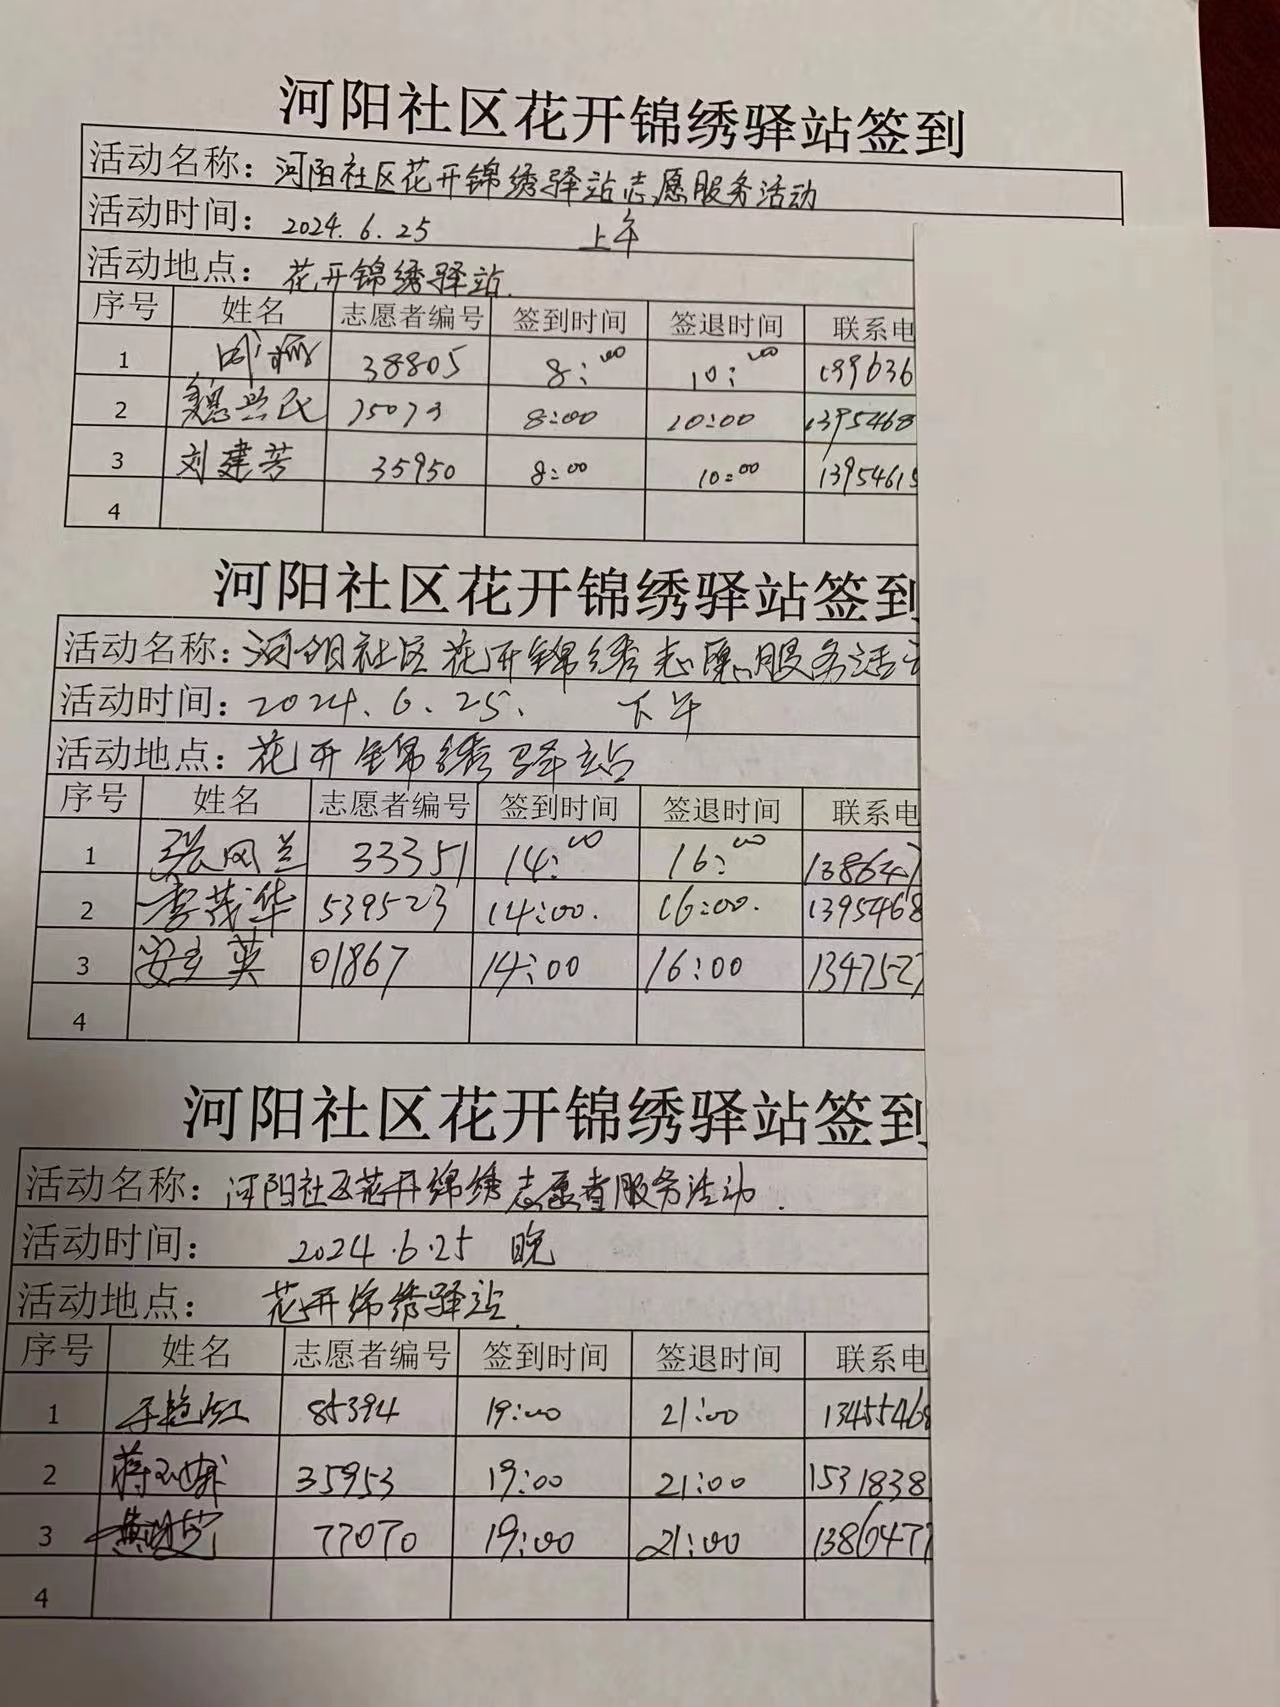 河阳社区花开锦绣驿站签到
活动名称：河阳社区花开锦绣驿站志愿服务活动
活动时间：2024.6.25 上午
活动地点：花开锦绣驿站.
序号 姓名 志愿者编号 签到时间 签退时间 联系电
1 38805 8:00 10:00 199636
2 魏兴民 8:00 10:00 1395468
3 刘建芳 35950 8:00 10:00 1395461
4
河阳社区花开锦绣驿站签到
活动名称：河阳社区花开锦绣志愿服务活
活动时间：2024.6.25. 下午
活动地点：花开锦绣驿站
序号 姓名 志愿者编号 签到时间 签退时间 联系电
1 张凤兰 33351 14:00 16:00 138647
2 李茂华 539523 14:00. 16:00. 1395468
3 安玉英 01867 14:00 16:00 1347527
4
河阳社区花开锦绣驿站签到
活动名称：河阳社区花开锦绣志愿者服务活动.
活动时间：2024.6.25 晚
活动地点：花开锦绣驿站.
序号 姓名 志愿者编号 签到时间 签退时间 联系电
1 85394 19:00 21:00 1345546
2 蒋 35953 19:00 21:00 1531838
3 77070 19:00 21:00 1386477
4